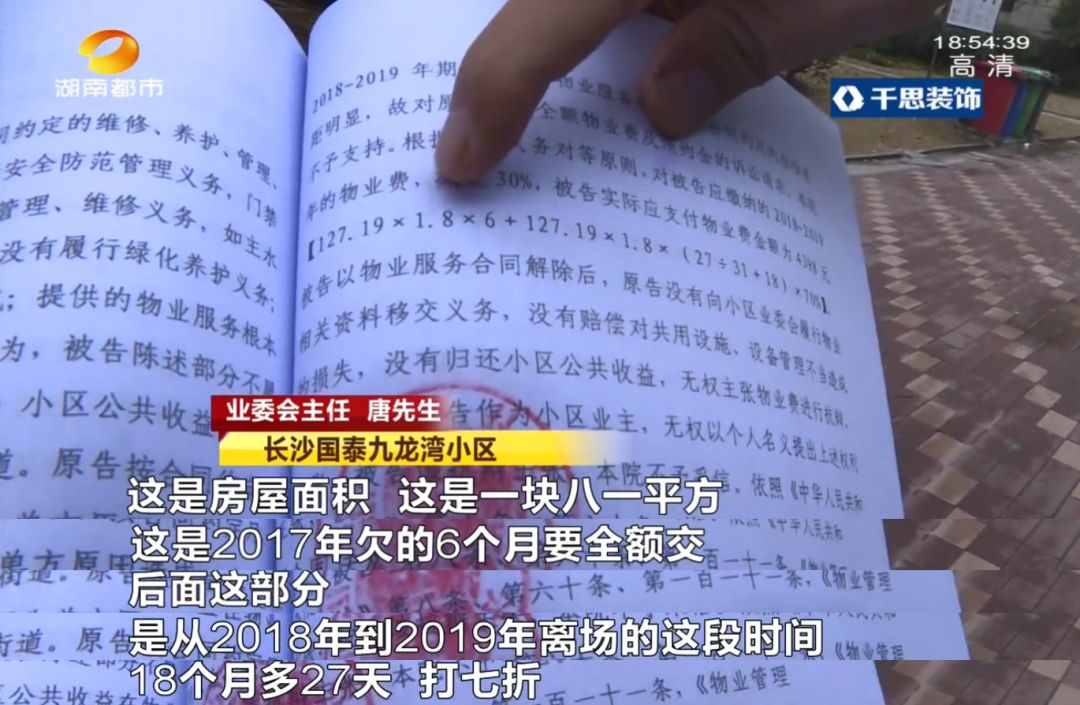 湖南都市
18:54:39
高清
千思装饰
同约定的维修、养护、管理、
安全防范管理义务，门禁
管理、维修义务，如主水
没有履行绿化养护义务；
；提供的物业服务根本
为，被告陈述部分不
小区公共收益
道。原告按合同
2018-2019 年期 物业服务
距明显，故对原 全额物业费及违约金的诉讼请求，本院
不予支持。根据 义务对等原则，对被告应缴纳的 2018-2019
年的物业费， 30%，被告实际应支付物业费金额为 4398 元
【127.19×1.8×6+127.19×1.8×（27÷31+18）×70%】。
被告以物业服务合同解除后，原告没有向小区业委会履行物业
相关资料移交义务，没有赔偿对共用设施、设备管理不当造成
的损失，没有归还小区公共收益，无权主张物业费进行抗辩，
告作为小区业主，无权以个人名义提出上述权利
本院不予采信。依照《中华人民共和
业委会主任 唐先生
长沙国泰九龙湾小区
这是房屋面积 这是一块八一平方
这是2017年欠的6个月要全额交
单方原因
街道。原告
第六十条、第一百一十一条，《物业管理
后面这部分
第八条
是从2018年到2019年离场的这段时间
道。原
《物业管理
18个月多27天 打七折
公共收益
一百一十一条，《物业管理